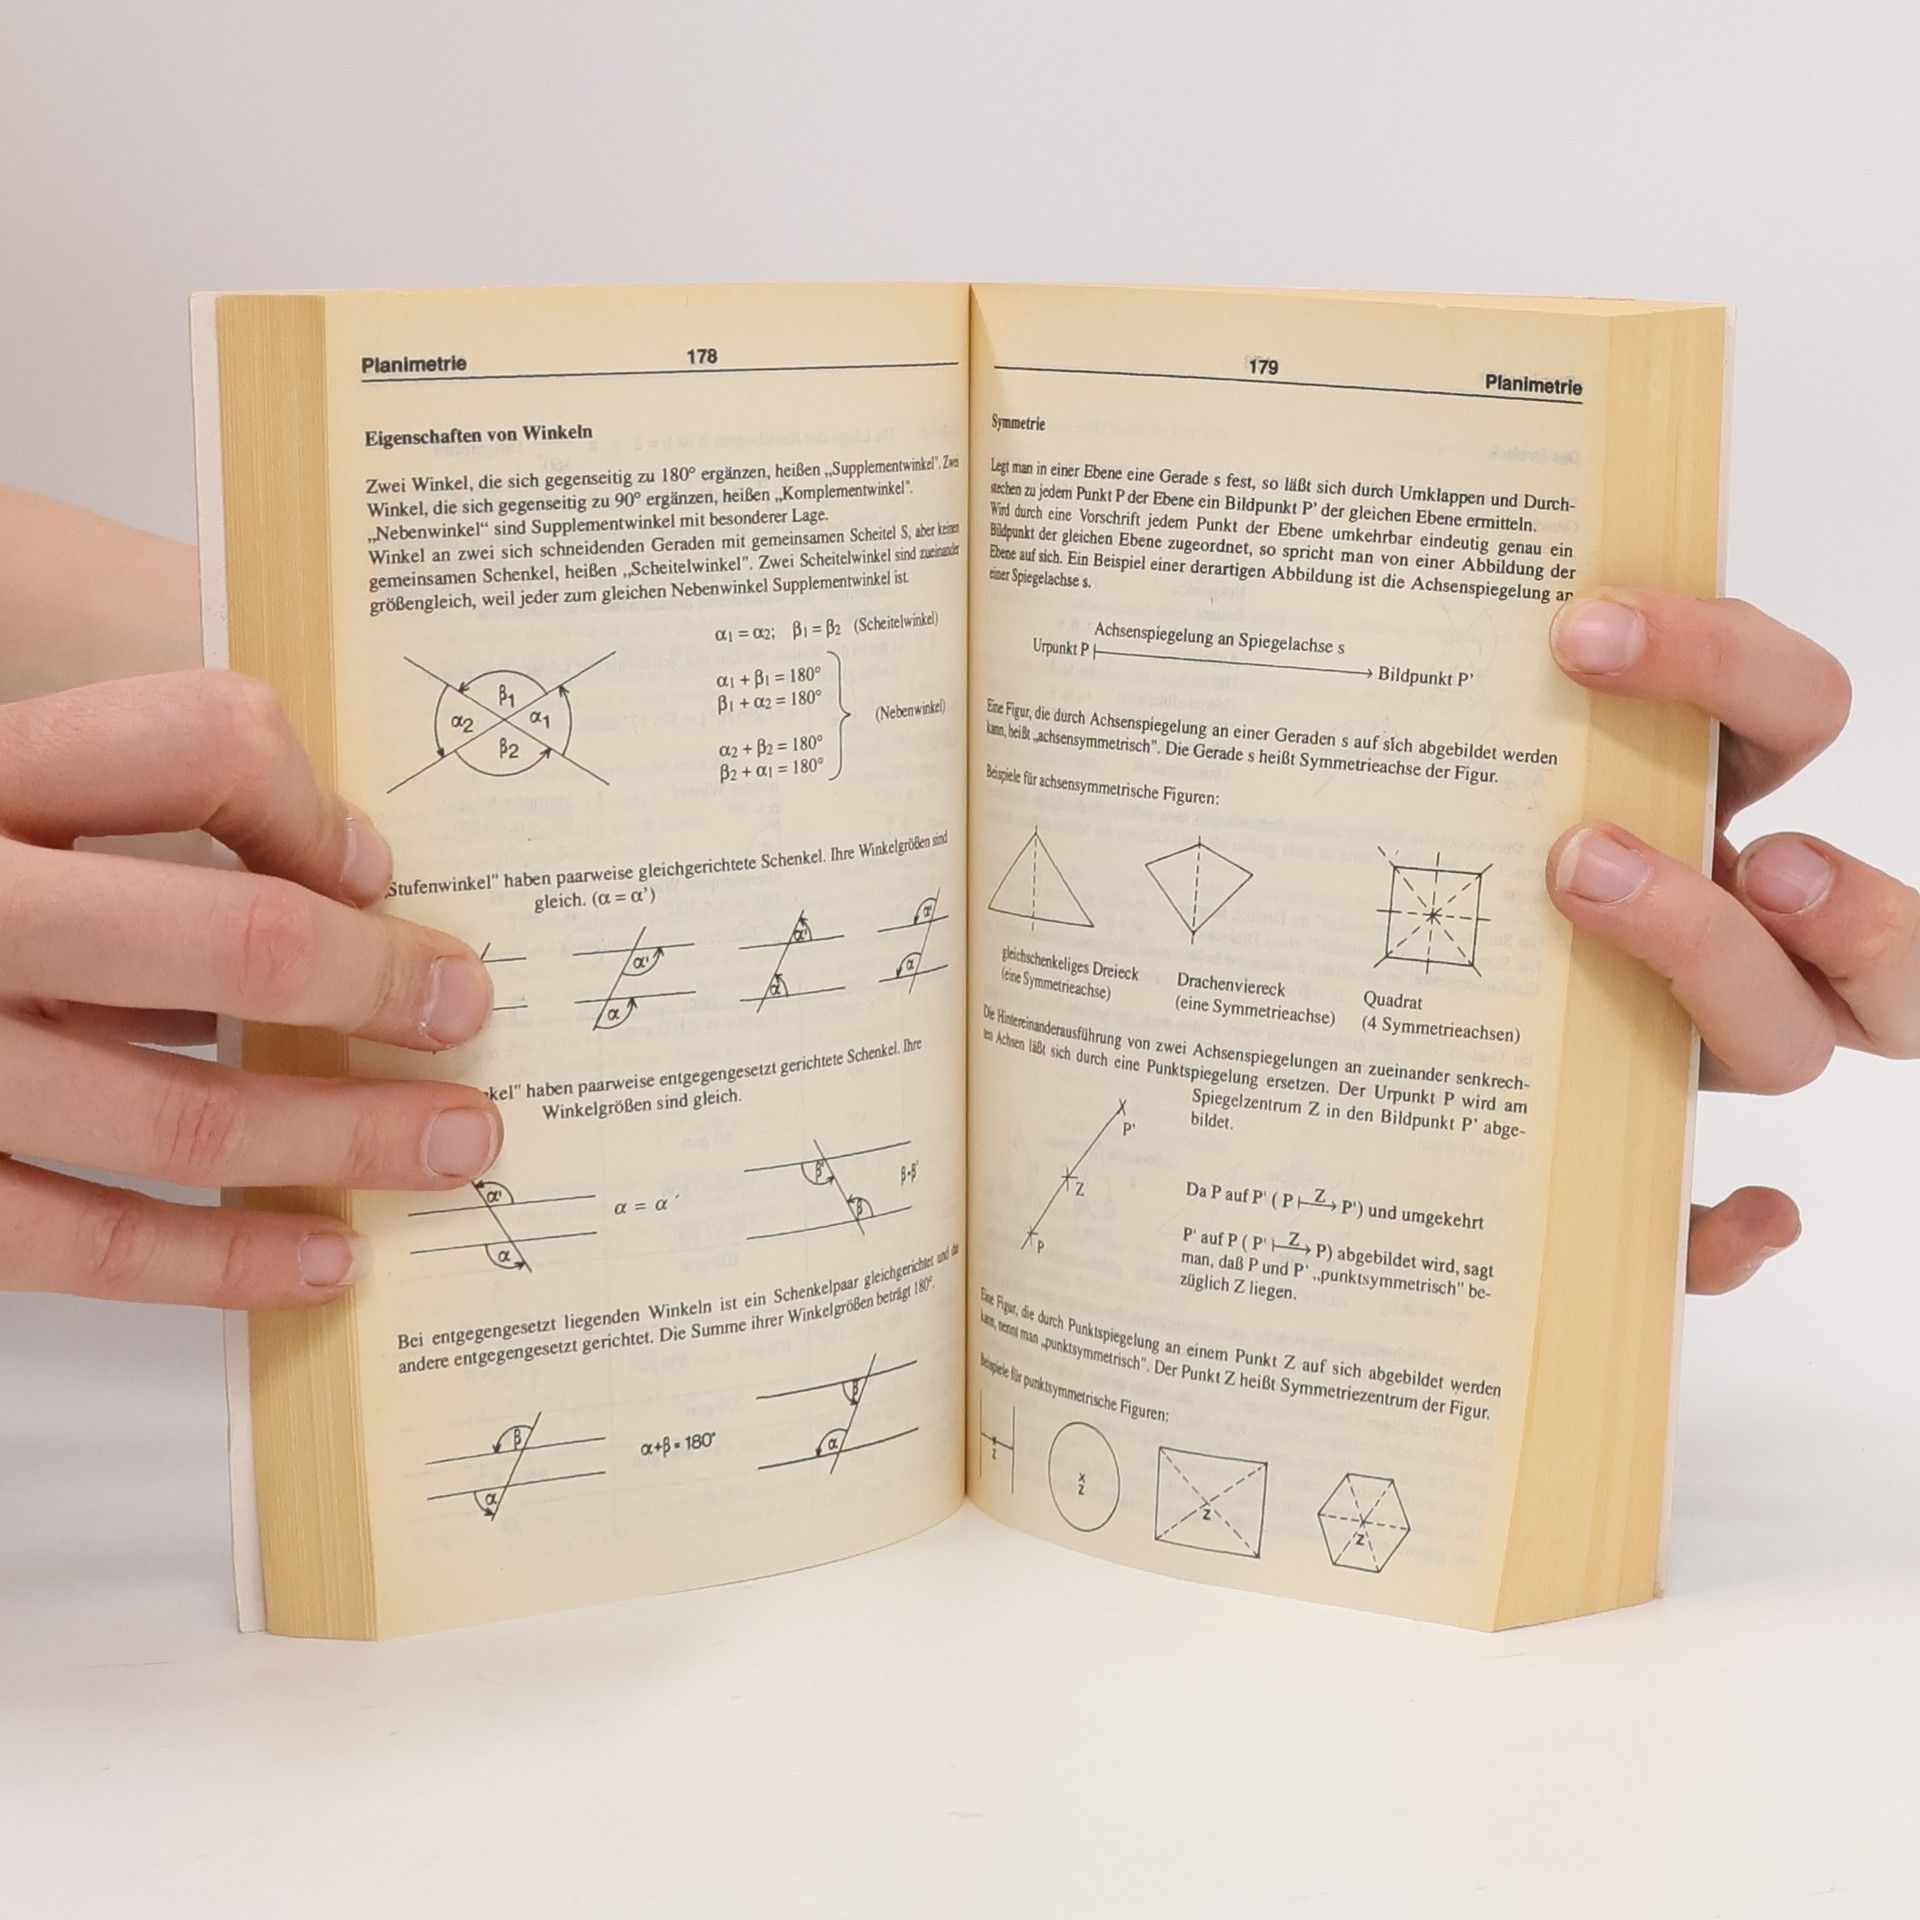 Planimetrie 178
Eigenschaften von Winkeln
Zwei Winkel, die sich gegenseitig zu 180° ergänzen, heißen „Supplementwinkel". Zwei
Winkel, die sich gegenseitig zu 90° ergänzen, heißen „Komplementwinkel".
„Nebenwinkel“ sind Supplementwinkel mit besonderer Lage.
Winkel an zwei sich schneidenden Geraden mit gemeinsamen Scheitel S, aber keinen
gemeinsamen Schenkel, heißen „Scheitelwinkel". Zwei Scheitelwinkel sind zueinander
größengleich, weil jeder zum gleichen Nebenwinkel Supplementwinkel ist.
α1 = α2; β1 = β2 (Scheitelwinkel)
α1 + β1 = 180°
β1 + α2 = 180°
(Nebenwinkel)
α2 + β2 = 180°
β2 + α1 = 180°
β1
α2 α1
β2
„Stufenwinkel" haben paarweise gleichgerichtete Schenkel. Ihre Winkelgrößen sind
gleich. (α = α’)
α' α' α'
α α α
kel" haben paarweise entgegengesetzt gerichtete Schenkel. Ihre
Winkelgrößen sind gleich.
α' α = α ' β' β=β'
α β
Bei entgegengesetzt liegenden Winkeln ist ein Schenkelpaar gleichgerichtet und das
andere entgegengesetzt gerichtet. Die Summe ihrer Winkelgrößen beträgt 180°.
β α+β = 180° β
α α
179 Planimetrie
Symmetrie
Legt man in einer Ebene eine Gerade s fest, so läßt sich durch Umklappen und Durch-
stechen zu jedem Punkt P der Ebene ein Bildpunkt P' der gleichen Ebene ermitteln.
Wird durch eine Vorschrift jedem Punkt der Ebene umkehrbar eindeutig genau ein
Bildpunkt der gleichen Ebene zugeordnet, so spricht man von einer Abbildung der
Ebene auf sich. Ein Beispiel einer derartigen Abbildung ist die Achsenspiegelung an
einer Spiegelachse s.
Achsenspiegelung an Spiegelachse s
Urpunkt P ↦ Bildpunkt P’
Eine Figur, die durch Achsenspiegelung an einer Geraden s auf sich abgebildet werden
kann, heißt „achsensymmetrisch". Die Gerade s heißt Symmetrieachse der Figur.
Beispiele für achsensymmetrische Figuren:
gleichschenkeliges Dreieck
(eine Symmetrieachse)
Drachenviereck
(eine Symmetrieachse)
Quadrat
(4 Symmetrieachsen)
Die Hintereinanderausführung von zwei Achsenspiegelungen an zueinander senkrech-
ten Achsen läßt sich durch eine Punktspiegelung ersetzen. Der Urpunkt P wird am
Spiegelzentrum Z in den Bildpunkt P' abge-
bildet.
P'
Z
P
Da P auf P' ( P ↦Z P') und umgekehrt
P' auf P ( P' ↦Z P) abgebildet wird, sagt
man, daß P und P' „punktsymmetrisch" be-
züglich Z liegen.
Eine Figur, die durch Punktspiegelung an einem Punkt Z auf sich abgebildet werden
kann, nennt man „punktsymmetrisch". Der Punkt Z heißt Symmetriezentrum der Figur.
Beispiele für punktsymmetrische Figuren:
Z Z Z Z